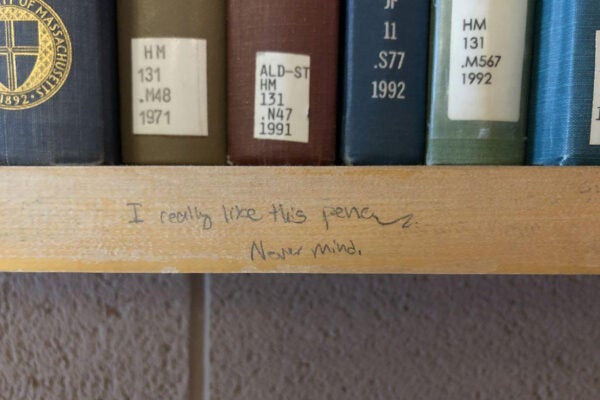 OF MASSACHUSETT
1892
HM
131
.M48
1971
ALD-ST
HM
131
.N47
1991
11
.S77
1992
HM
131
.M567
1992
I really like this penc
Never mind.